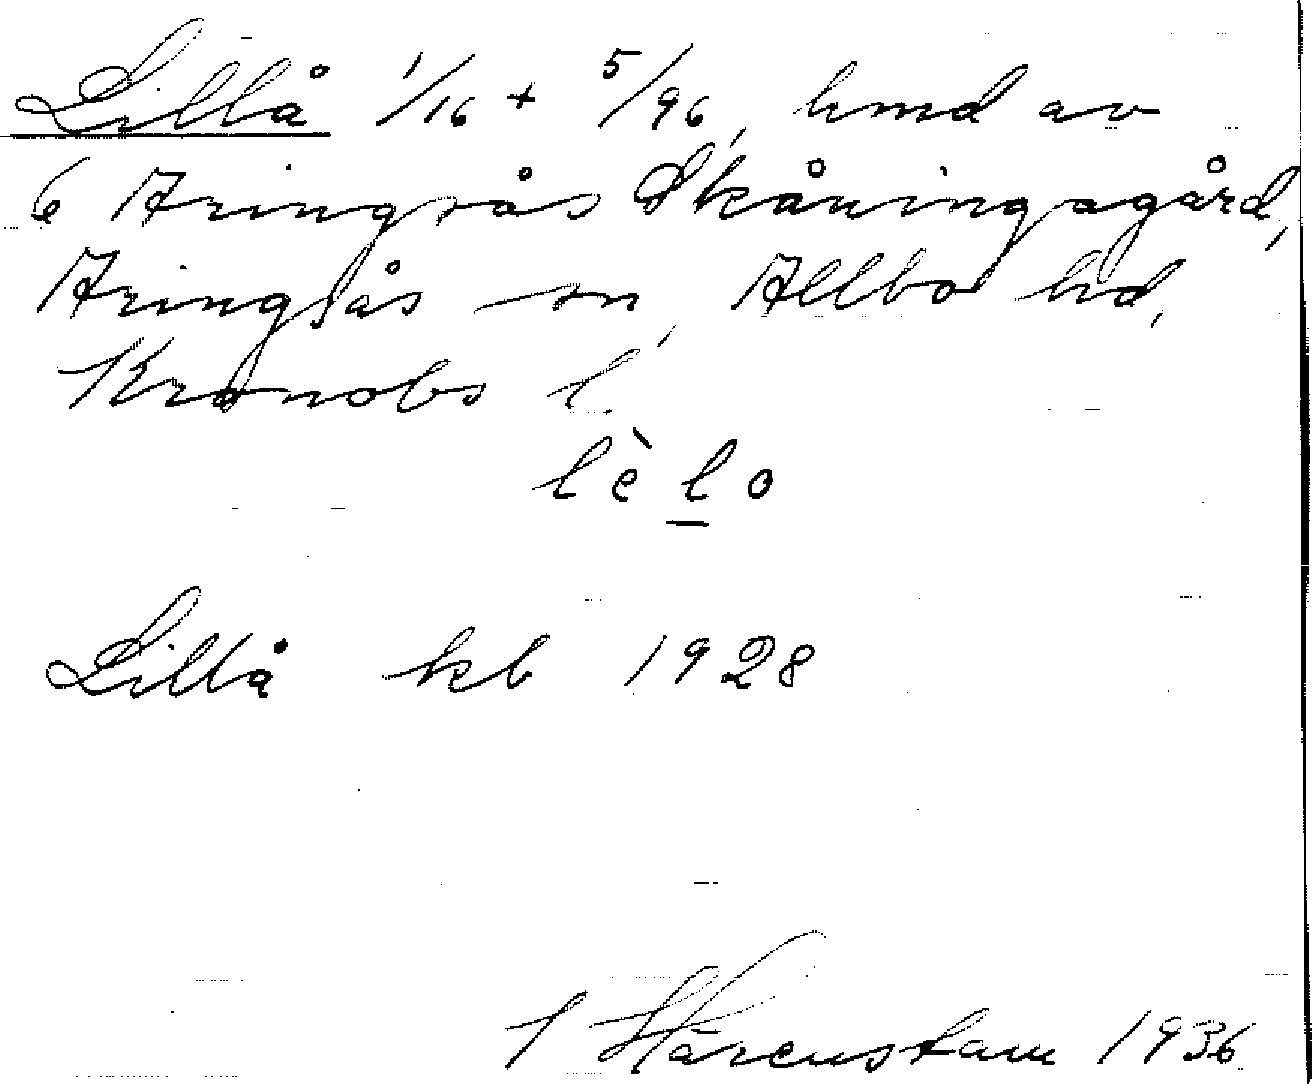 Lillå 1/16 + 5/96, hmd av
6 Aringsås Skåningagård,
Aringsås sn, Allbo hd,
Kronobs l.
lè l o
Lillå kb 1928
Härenstam 1936